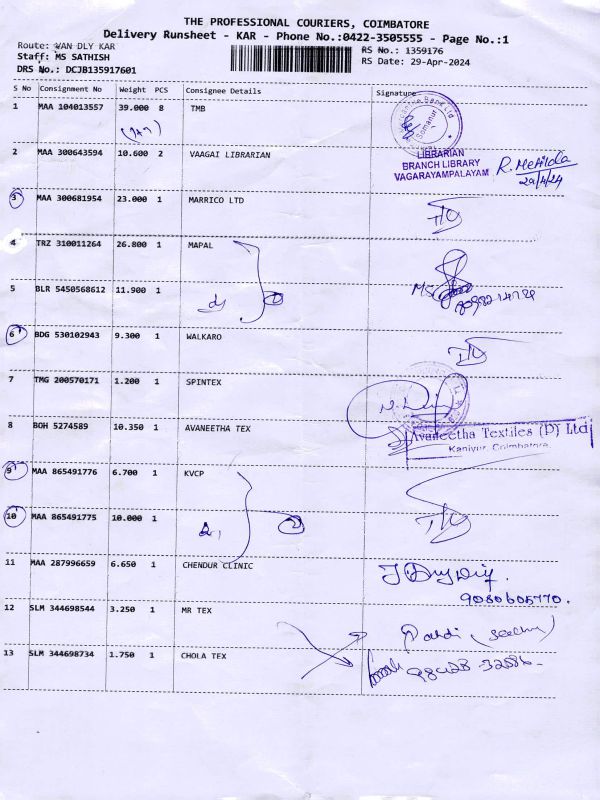 THE PROFESSIONAL COURIERS, COIMBATORE
Delivery Runsheet - KAR - Phone No.:0422-3505555 - Page No.:1
Route: VAN DLY KAR
RS No.: 1359176
Staff: MS SATHISH
RS Date: 29-Apr-2024
DRS No.: DCJB135917601
S No Consignment No Weight PCS Consignee Details Signature
1 MAA 104013557 39.000 8 TMB
Somanur
2 MAA 300643594 10.600 2 VAAGAI LIBRARIAN
LIBRARIAN
BRANCH LIBRARY
VAGARAYAMPALAYAM
R. Metilda
29/4/24
3 MAA 300681954 23.000 1 MARRICO LTD
4 TRZ 310011264 26.800 1 MAPAL
5 BLR 5450568612 11.900 1
6 BDG 530102943 9.300 1 WALKARO
7 TMG 200570171 1.200 1 SPINTEX
8 BOH 5274589 10.350 1 AVANEETHA TEX
Avaneetha Textiles (P) Ltd
Kaniyur, Coimbatore.
9 MAA 865491776 6.700 1 KVCP
10 MAA 865491775 10.000 1
11 MAA 287996659 6.650 1 CHENDUR CLINIC
9080605770.
12 SLM 344698544 3.250 1 MR TEX
13 SLM 344698734 1.750 1 CHOLA TEX